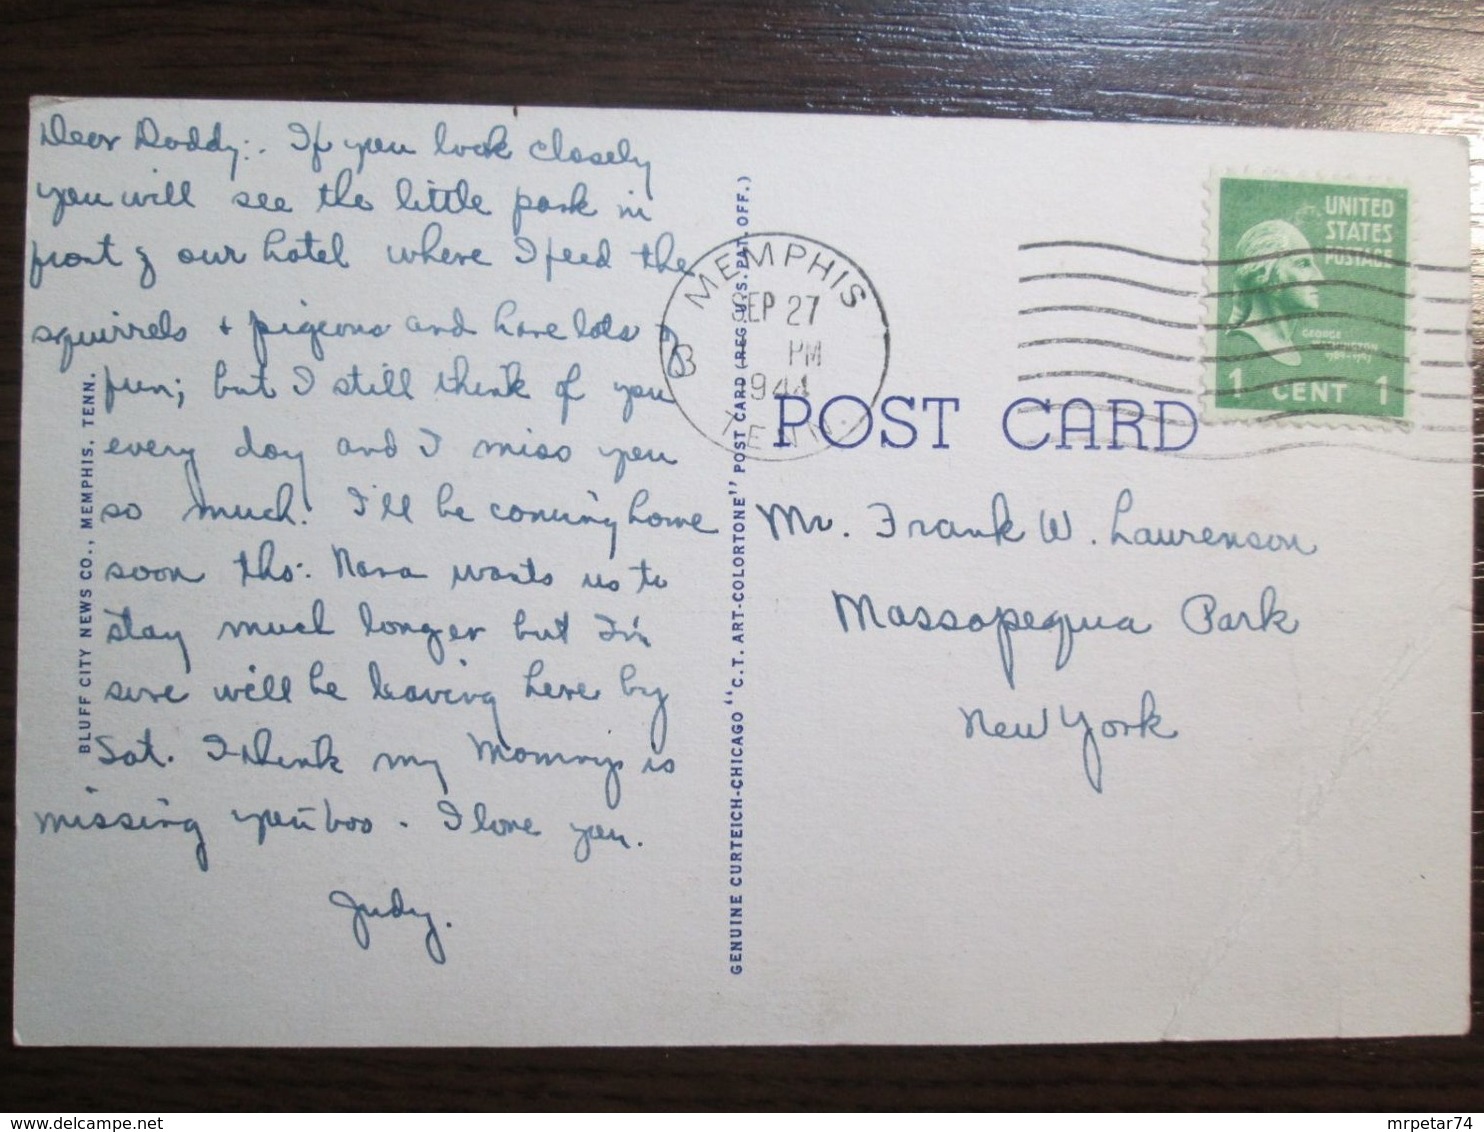 Dear Daddy:. If you look closely
you will see the little park in
front of our hotel where I feed the
squirrels + pigeons and have lots of
fun; but I still think of you
every day and I miss you
so much. I'll be coming home
soon tho. Nana wants us to
stay much longer but I'm
sure will be leaving here by
Sat. I think my Mommy is
missing you too. I love you.
Judy.
BLUFF CITY NEWS CO., MEMPHIS, TENN.
GENUINE CURTEICH-CHICAGO "C.T. ART-COLORTONE" POST CARD (REG. U.S. PAT. OFF.)
MEMPHIS
SEP 27
PM
1944
TENN.
UNITED
STATES
POSTAGE
GEORGE
WASHINGTON
1789-1797
1 CENT 1
POST CARD
Mr. Frank W. Laurenson
Massapequa Park
New York
mrpetar74